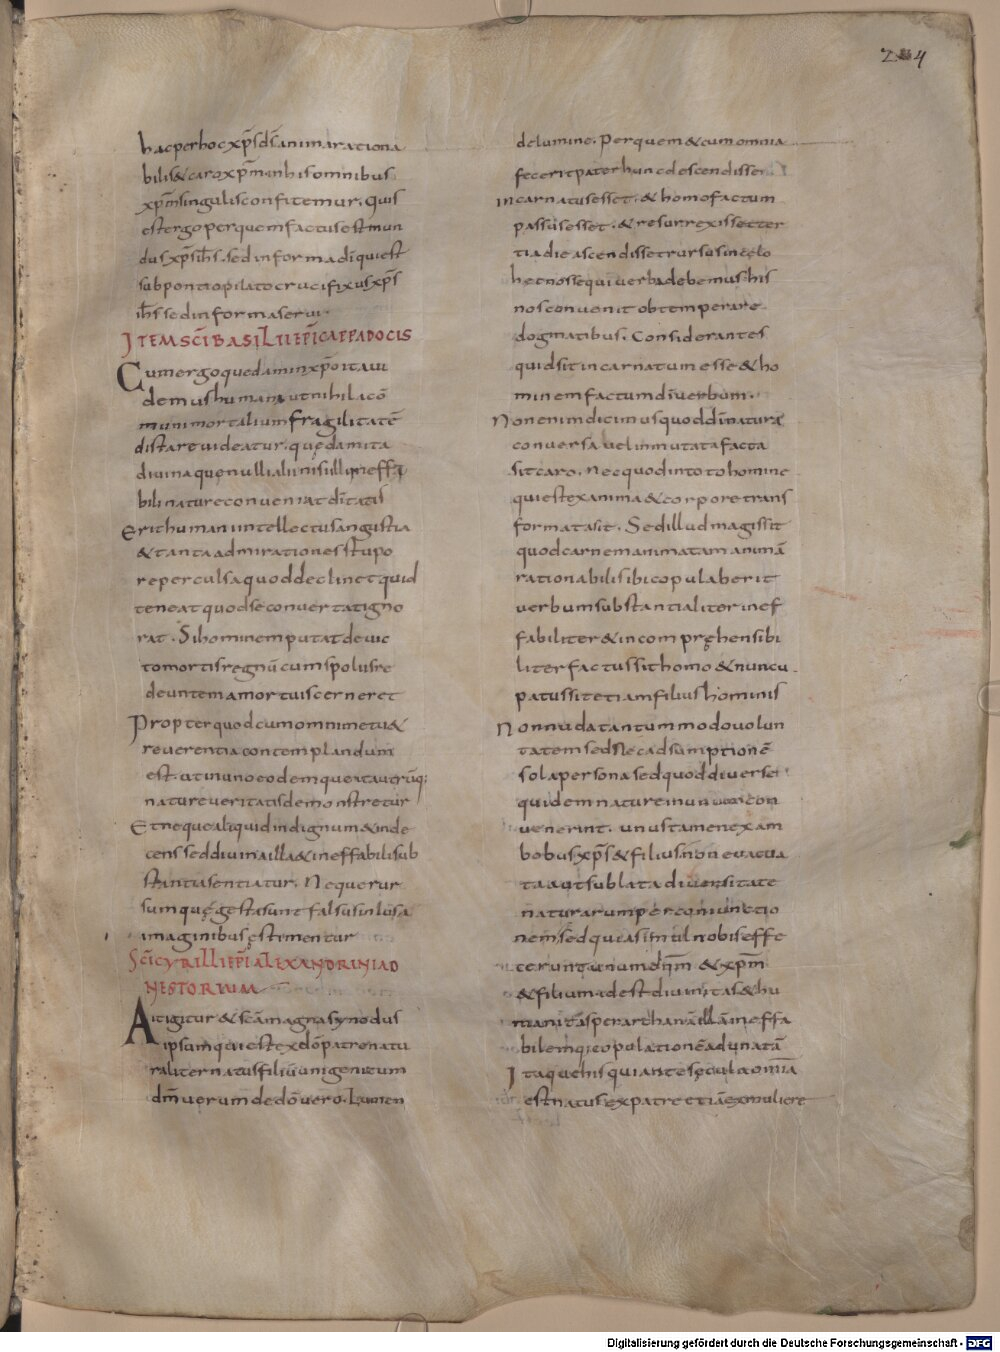 244
hac per hoc xp̄s d̄s anima rationa
bilis & caro xp̄m in his omnibus
xp̄m singulis confitemur. Quis
est ergo per quem factus est mun
dus xp̄s ih̄s. sed in forma dī quiest
sub pontio pilato crucifixus xp̄s
ih̄s sed in forma serui.
ITEM SC̄I BASILII EPĪ CAPPADOCIS
Cum ergo quedam in xp̄o ita ui
demus humana ut nihil a cō
muni mortalium fragilitatē
distare uideatur. quędam ita
diuina que nulli alii nisi illi ineffa
bili nature conueniat dītatis
erit humani intellectus angustia
& tanta admirationes stupo
re perculsa quod declinet quid
teneat quo se conuertat igno
rat. Si hominem putat deuic
to mortis regnū cum spolus re
deuntem a mortuis cerneret
Propter quod cum omni metu &
reuerentia contemplandum
est. ut in uno eodemque ita utriūq;
nature ueritatis demonstretur
Et neque aliquid indignum & inde
cens sed diuina illa & ineffabili sub
stantia sentiatur. Neque rur
sum quę gesta sunt falsus inlusa
imaginibus ęstimentur
SC̄I CYRILLI EPĪ ALEXANDRINI AD
NESTORIUM
Ait igitur & sc̄a magna synodus
ipsum qui est ex dō patre natu
raliter natus filiū unigenitum
dm̄ uerum de dō uero. Lumen
de lumine. Per quem & cum omnia
fecerit pater hunc descendisse
incarnatus esset. & homo factum
passus esset. & resurrexisse ter
tia die ascendisset rursus in celo
hec nos sequi uerba debemus his
nos conuenit obtemperare
dogmatibus. Considerantes
quid sit incarnatum esse & ho
minem factum dī uerbum.
Non enim dicimus quod dī natura
conuersa uel inmutata facta
sit caro. nec quod in toto homine
qui est ex anima & corpore trans
formata sit. Sed illud magis sit
quod carnem animatam animā
rationabili sibi copulaberit
uerbum substantialiter inef
fabiliter & incompręhensibi
liter factus sit homo & nuncu
patus sit etiam filius hominis
Non nuda tantummodo uolun
tatem sed nec adsumptionē
sola persona sed quod diuerse
quidem nature in unum con
uenerint. unus tamen ex am
bobus xp̄s & filius non euacua
ta aut sublata diuersitate
naturarum per coniunctio
nem sed quea simul nobis effe
terunt unum dn̄m & xp̄m
& filium id est diuinitas & hu
manitas per archanā illā ineffa
bilemq; copulationē adunatā
Itaque his qui ante sęcula omīa
est natus ex patre etiā ex muliere
Digitalisierung gefördert durch die Deutsche Forschungsgemeinschaft - DFG